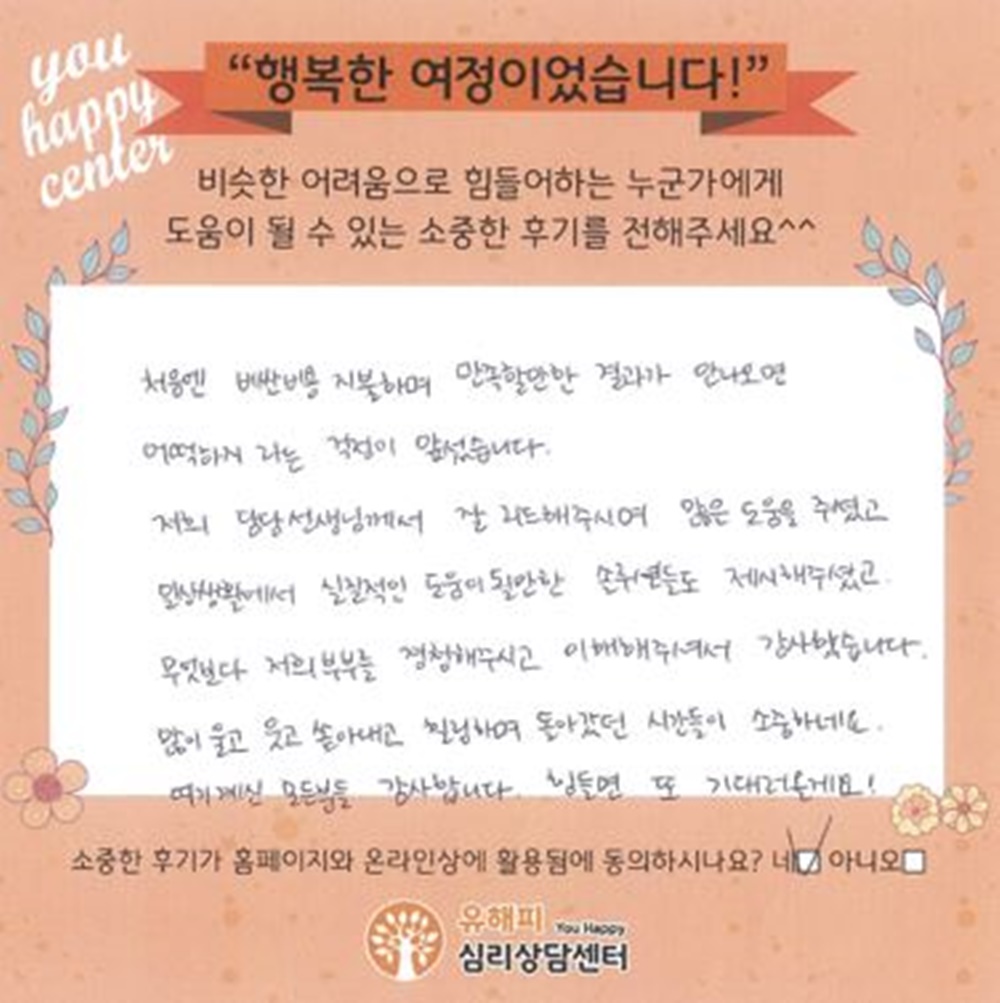 you
happy
center
“행복한 여정이었습니다!”
비슷한 어려움으로 힘들어하는 누군가에게
도움이 될 수 있는 소중한 후기를 전해주세요^^
처음엔 비싼비용 지불하며 만족할만한 결과가 안나오면
어떡하지 라는 걱정이 앞섰습니다.
저희 담당선생님께서 잘 리드해주시며 많은 도움을 주셨고
일상생활에서 실질적인 도움이될만한 솔루션들도 제시해주셨고.
무엇보다 저희부부를 경청해주시고 이해해주셔서 감사했습니다.
많이 울고 웃고 쏟아내고 힐링하며 돌아갔던 시간들이 소중하네요.
여기계신 모든분들 감사합니다. 힘들면 또 기대러올게요!
소중한 후기가 홈페이지와 온라인상에 활용됨에 동의하시나요? 네 아니오
유해피 You Happy
심리상담센터